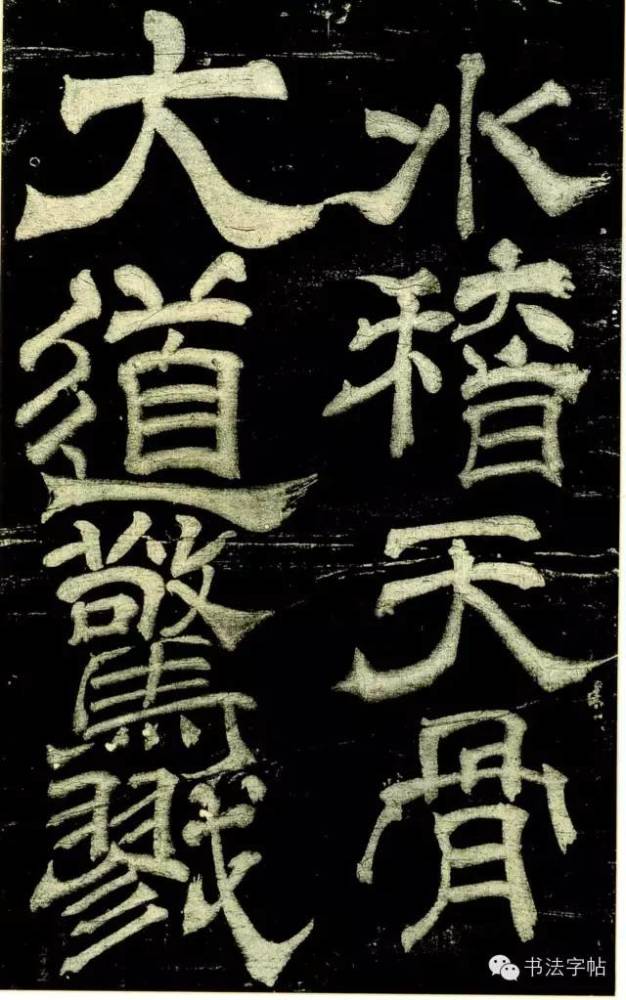 水稽天骨
大道驚戮
书法字帖